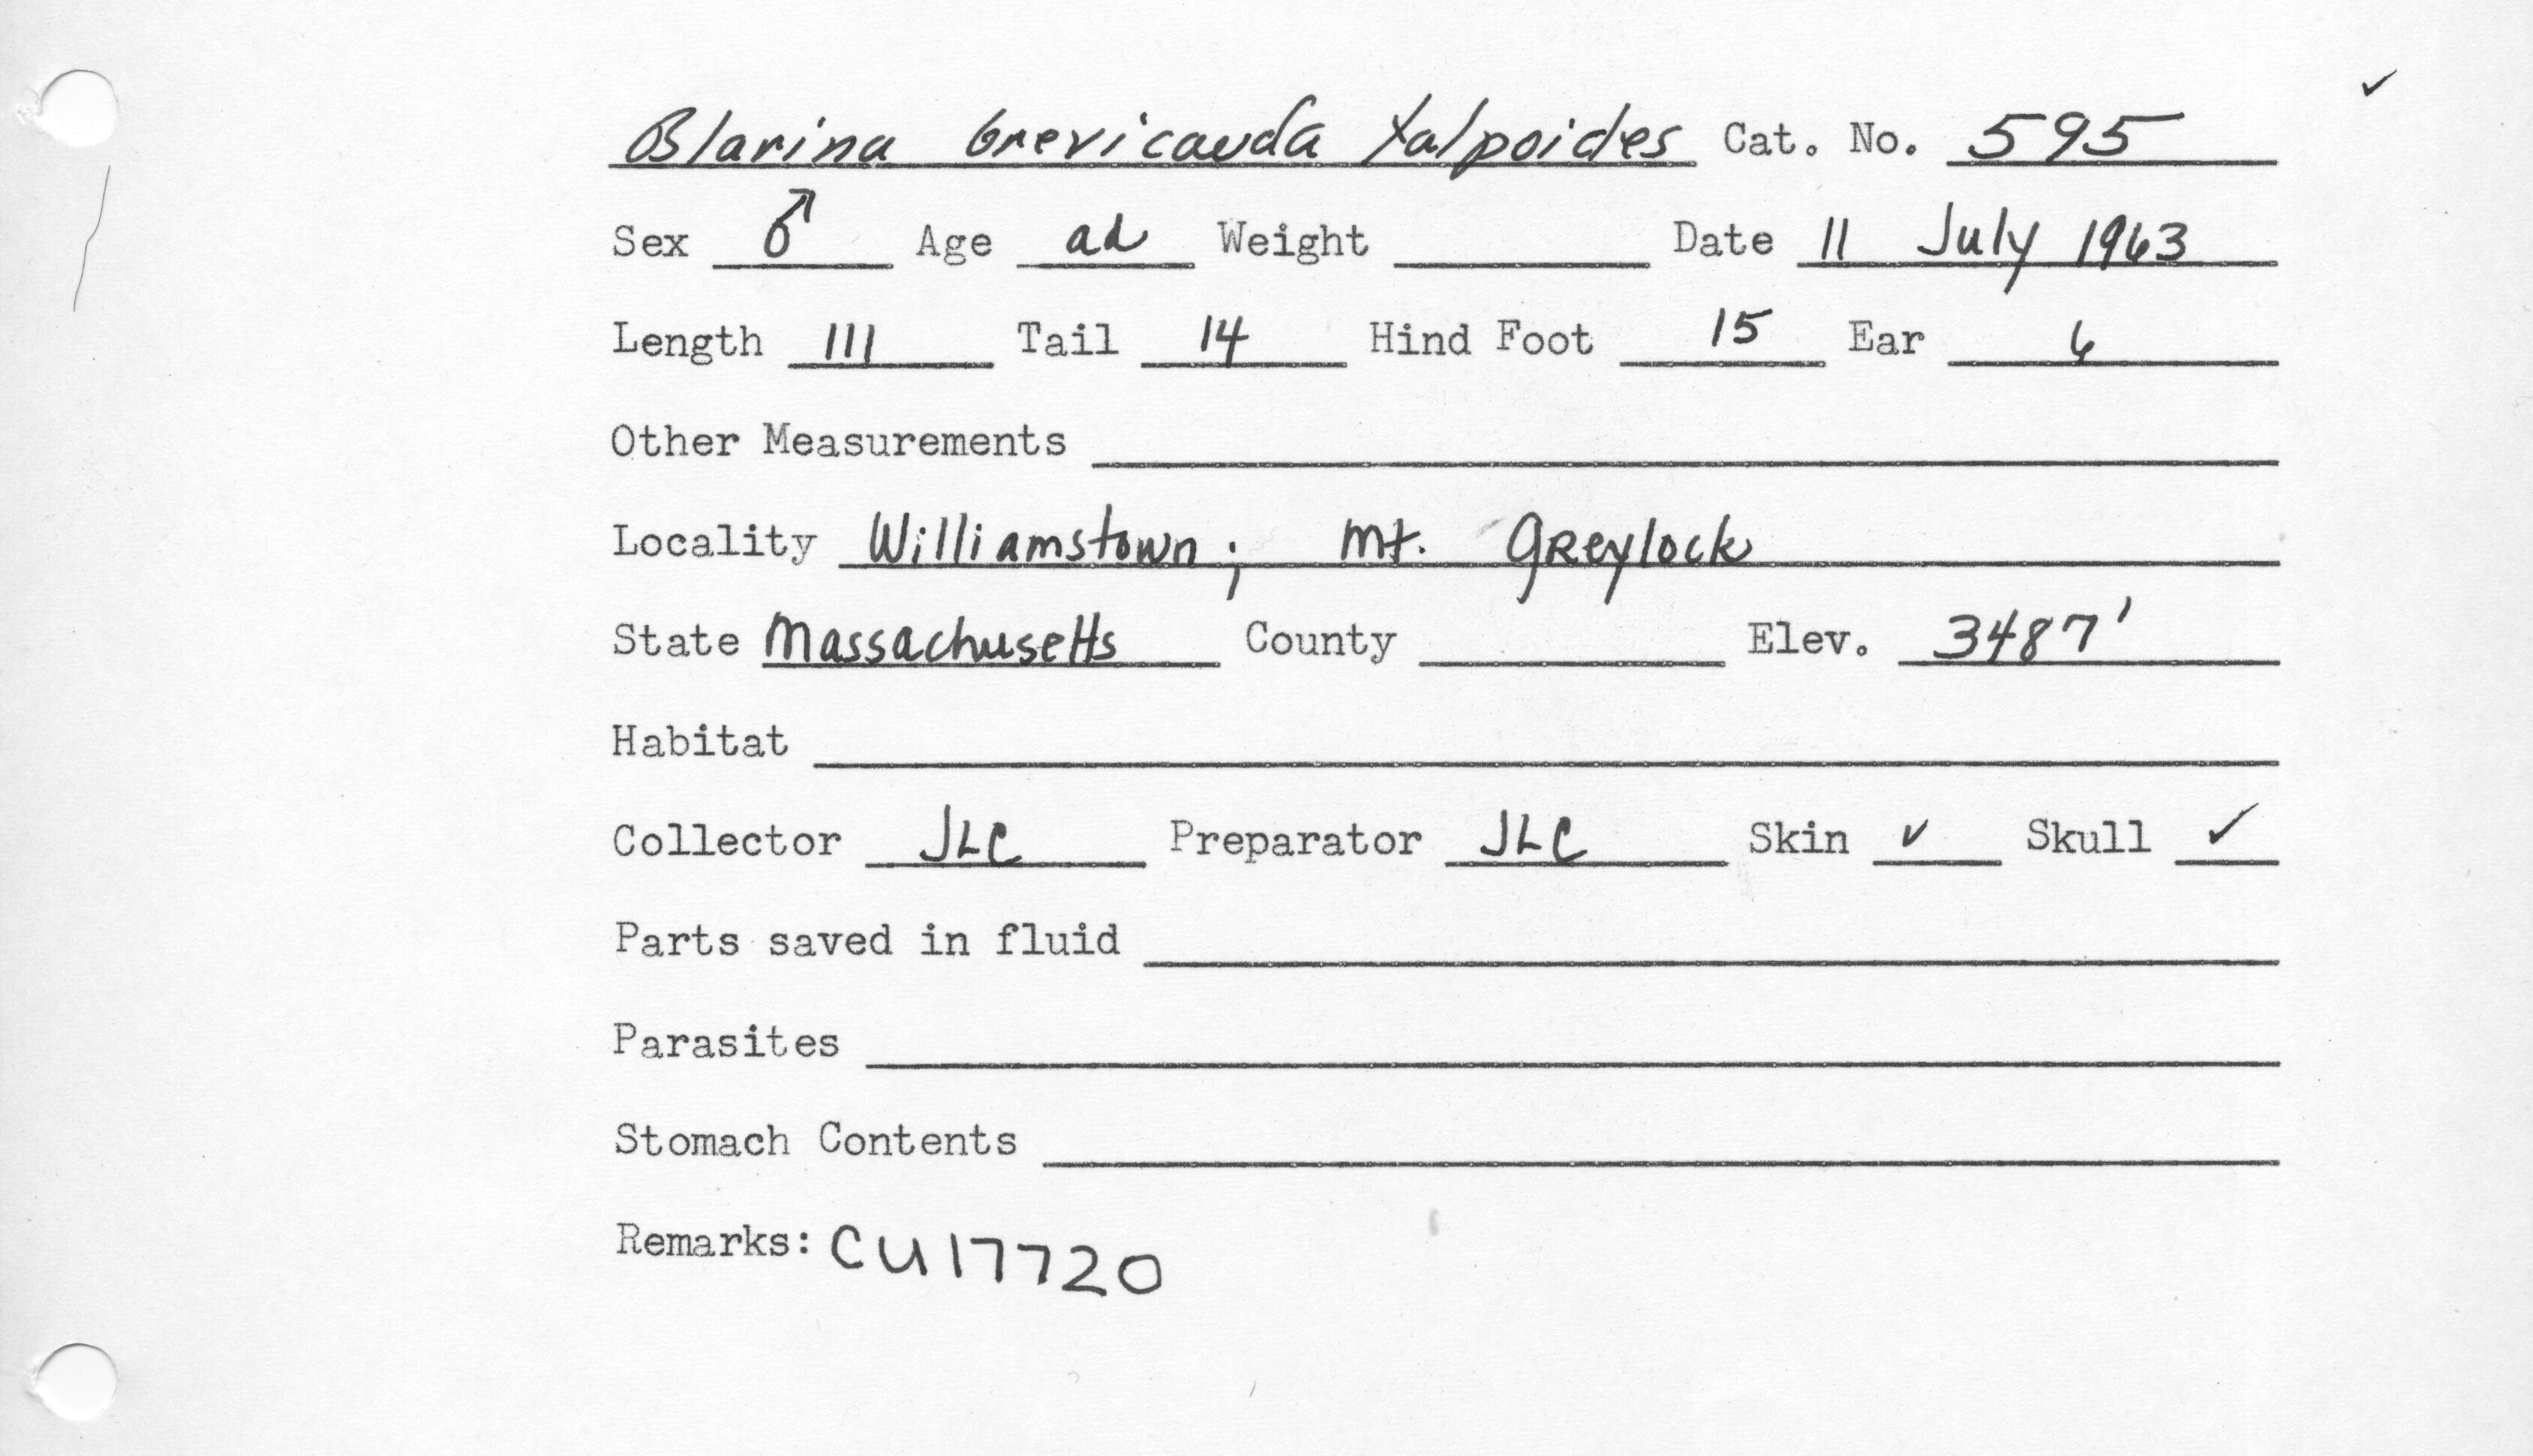 Blarina brevicauda talpoides Cat. No. 595
Sex ♂ Age ad Weight Date 11 July 1963
Length 111 Tail 14 Hind Foot 15 Ear 6
Other Measurements
Locality Williamstown; Mt. Greylock
State Massachusetts County Elev. 3487'
Habitat
Collector JLC Preparator JLC Skin ✓ Skull ✓
Parts saved in fluid
Parasites
Stomach Contents
Remarks: CU17720